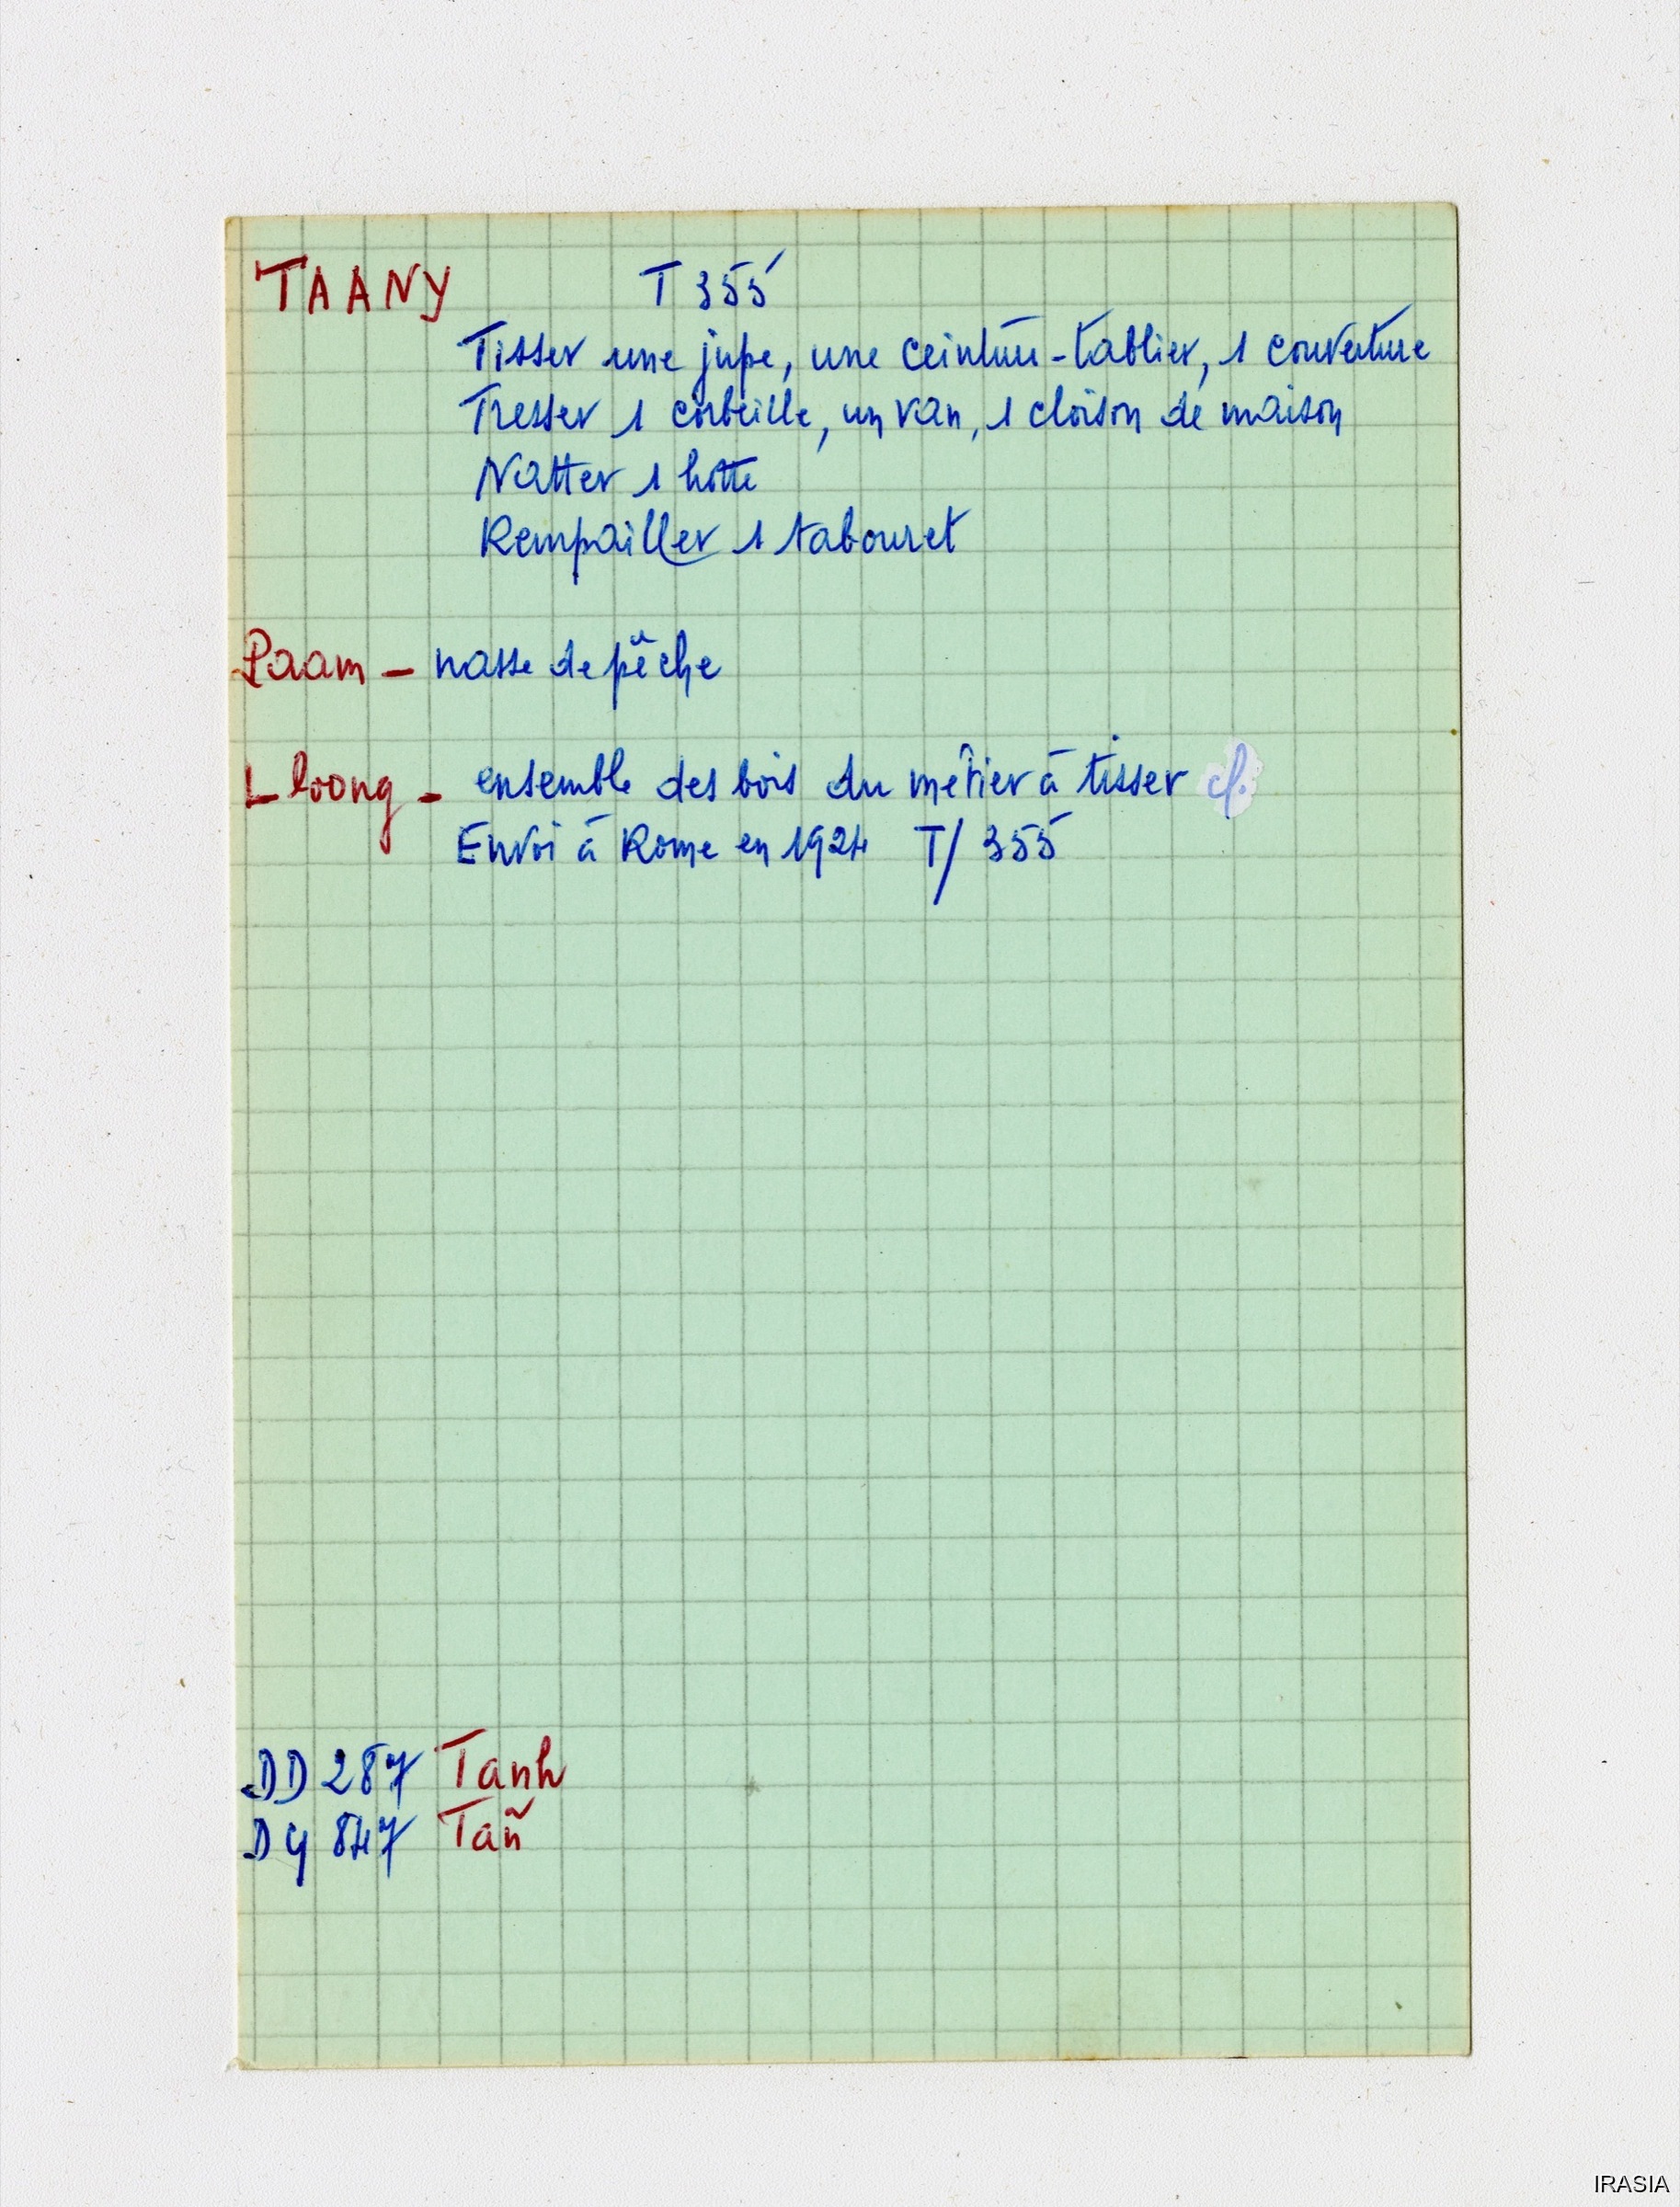 TAANY T 355
Tisser une jupe, une ceinture-tablier, 1 couverture
Tresser 1 corbeille, un van, 1 cloison de maison
Natter 1 hotte
Rempailler 1 tabouret
Paam - nasse de pêche
L loong - ensemble des bois du métier à tisser
Envoi à Rome en 1924 T/ 355
DD 287 Tanh
DY 847 Tañ
IRASIA